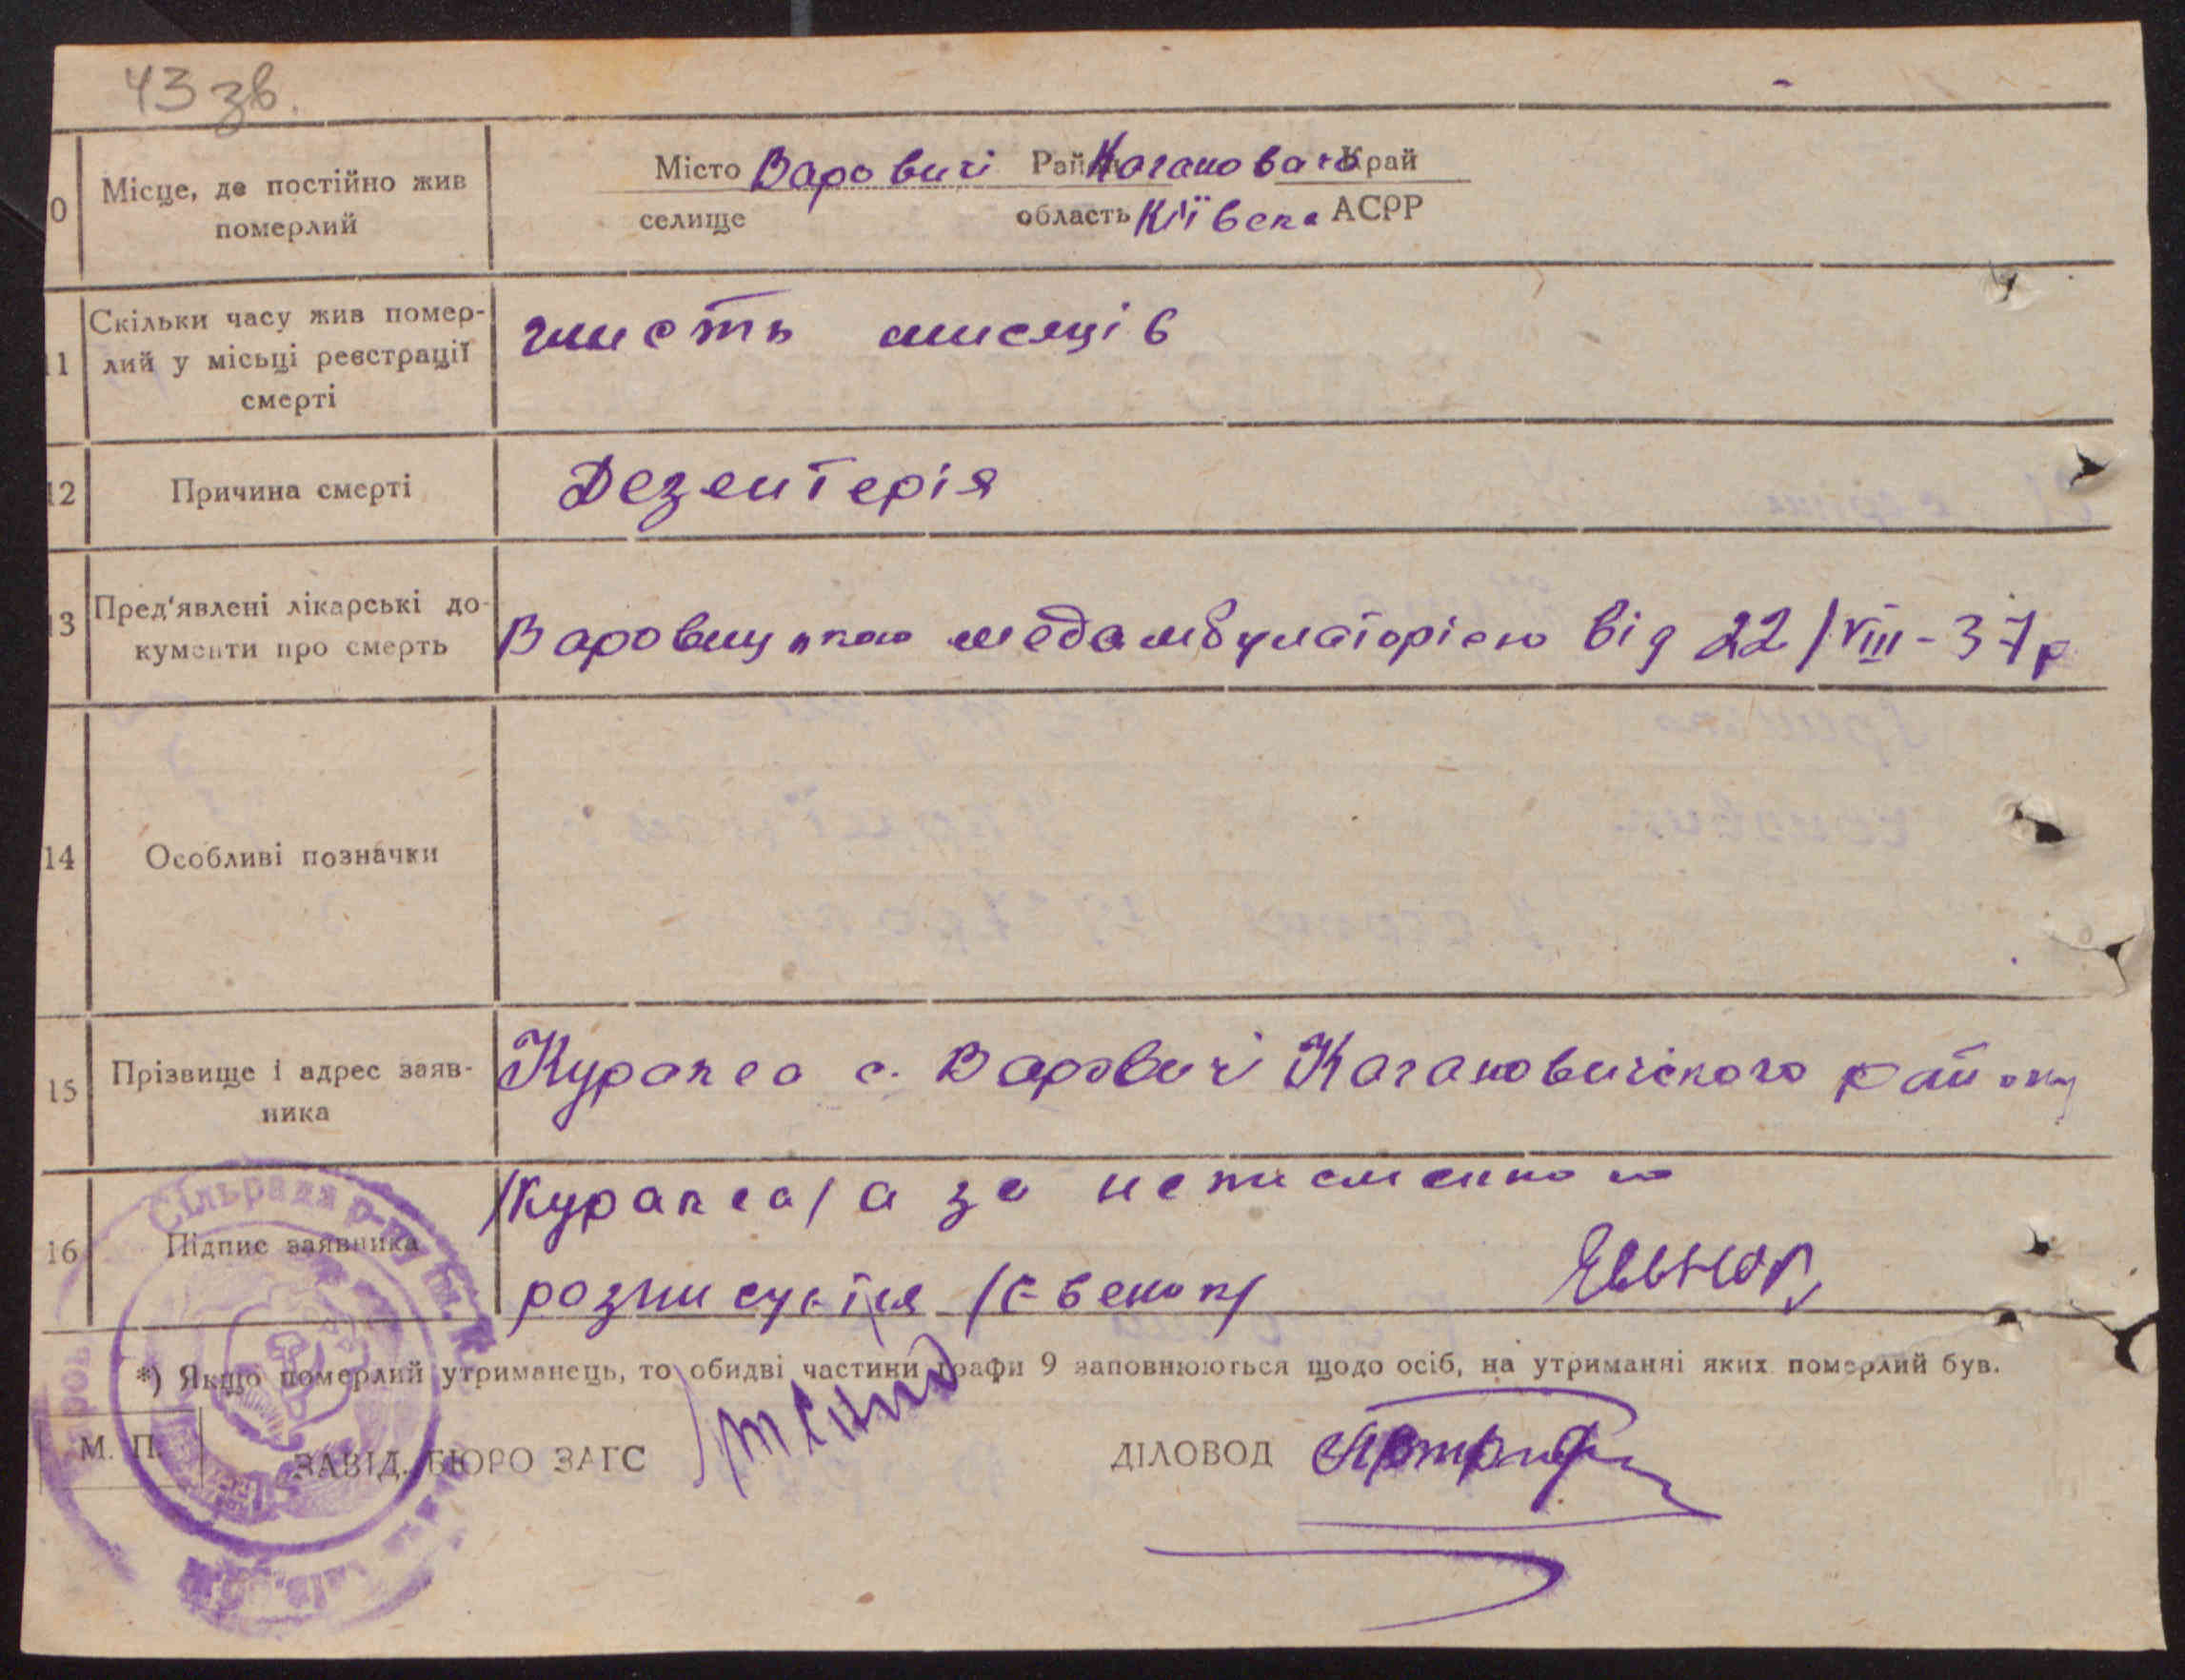 43 зв.
0 Місце, де постійно жив померлий
Місто Варовичі Район Кагановичо Край
селище область Київська АСРР
11 Скільки часу жив помер-
лий у місьці реєстрації
смерті
шисть мисяців
12 Причина смерті Дезентерія
13 Пред'явлені лікарські до-
кументи про смерть
Варовицькою медамбулаторією від 22/VIII-37р
14 Особливі позначки
15 Прізвище і адрес заяв-
ника
Курапєа с. Варовичі Кагановичіського району
16 Підпис заявника
/Курапєа/ а за неписьменною
розписується /Євенок/
Сільрада р-ну ім.
*) Якщо померлий утриманець, то обидві частини графи 9 заповнюються щодо осіб, на утриманні яких померлий був.
М. П. ЗАВІД. БЮРО ЗАГС ДІЛОВОД